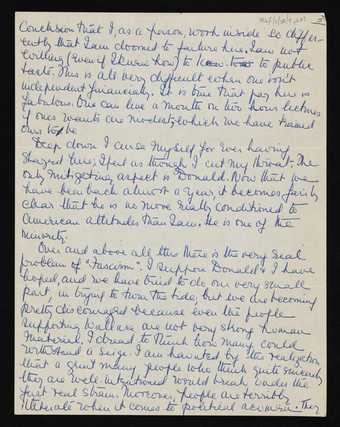 conclusion that I, as a person, work inside so differ-
ently that I am doomed to failure here. I am not
willing (even if I knew how) to to public
taste. This is all very difficult when one isn't
independent financially. It is true that pay here is
fabulous. One can live a month on two hours lectures
if one's wants are modest, which we have trained
ours to be.
Deep down I curse myself for ever having
changed here; I feel as though I cut my throat. The
only mitigating aspect is Donald. Now that we
have been back almost a year, it becomes fairly
clear that he is no more really conditioned to
American attitudes than I am. He is one of the
minority.
Over and above all this there is the very real
problem of "Fascism". I suppose Donald & I have
hoped, and we have tried to do our very small
part, in trying to turn the tide, but we are becoming
pretty discouraged because even the people
supporting Wallace are not very strong human
material. I dread to think how many could
withstand a siege. I am haunted by the realization
that a great many people who think quite sincerely
they are well-intentioned would break under the
first real strain. Moreover, people are terribly
illiterate when it comes to political acumen. They